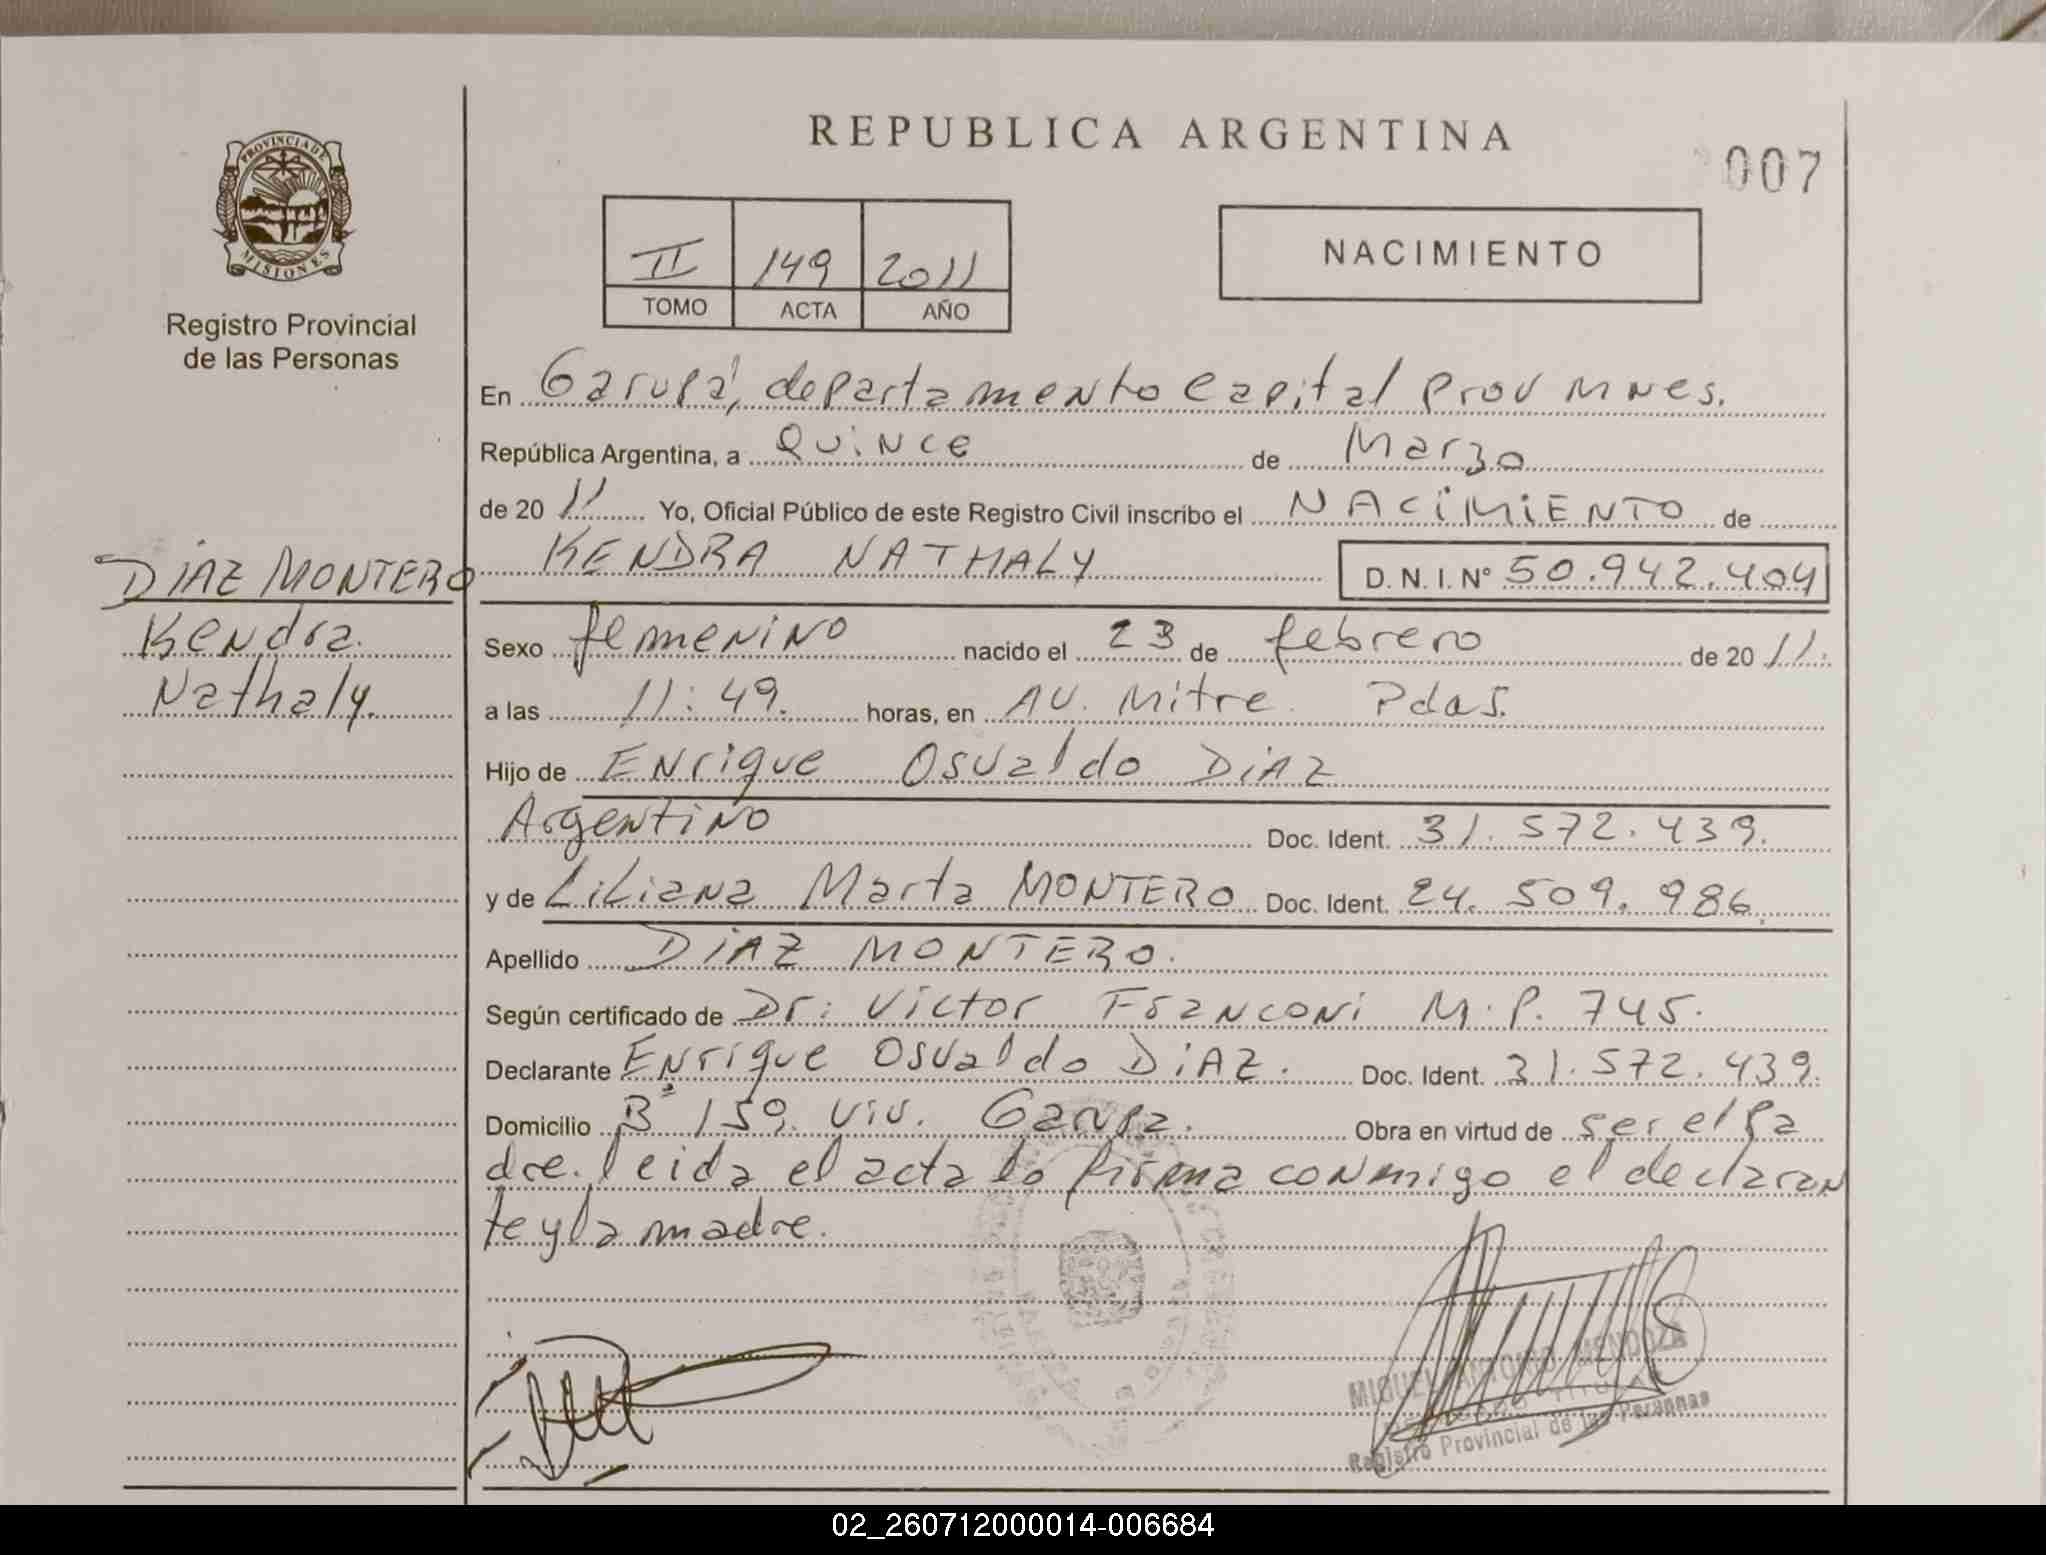 REPUBLICA ARGENTINA
007
PROVINCIA DE
MISIONES
Registro Provincial
de las Personas
II 149 2011
TOMO ACTA AÑO
NACIMIENTO
En Garupá, departamento Capital Prov Mnes.
República Argentina, a Quince de Marzo
de 20 11 Yo, Oficial Público de este Registro Civil inscribo el NACIMIENTO de
KENDRA NATHALY D. N. I. N° 50.942.404
DIAZ MONTERO
Kendra
Nathaly.
Sexo femenino nacido el 23 de febrero de 20 11.
a las 11:49. horas, en AV. Mitre. Pdas.
Hijo de Enrique Osvaldo DIAZ
Argentino Doc. Ident. 31.572.439.
y de Liliana Marta MONTERO Doc. Ident. 24.509.986.
Apellido DIAZ MONTERO.
Según certificado de Dr: Victor Franconi M.P. 745.
Declarante Enrique Osvaldo DIAZ. Doc. Ident. 31.572.439.
Domicilio B° 159 Viv. Garupa. Obra en virtud de ser el pa
dre. leida el acta lo firma conmigo el declaran
te y la madre.
MIGUEL ANTONIO MENDOZA
Registro Provincial de las Personas
02_260712000014-006684